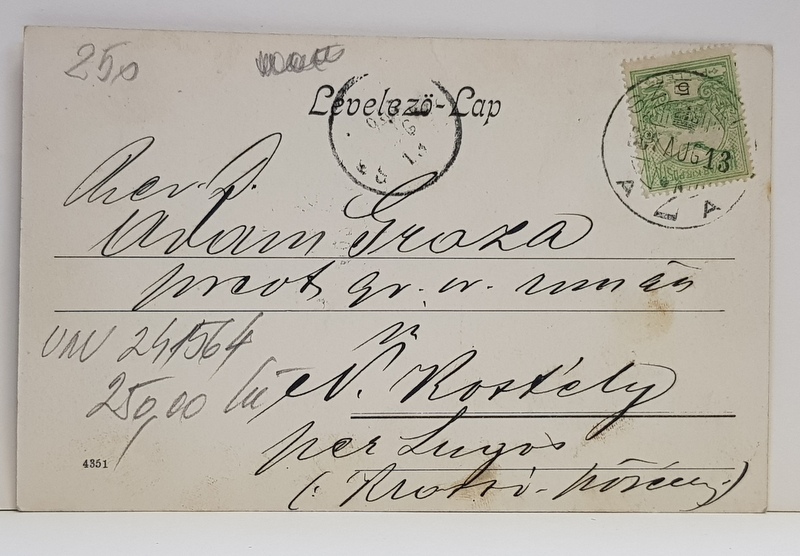 250
Levelező-Lap
AUG 13
Adam Groza
preot gr. or. român
în
N. Kostély
per Lugos
(: Krassó-Szörény :)
UNV 241564
250,00 lei
4351